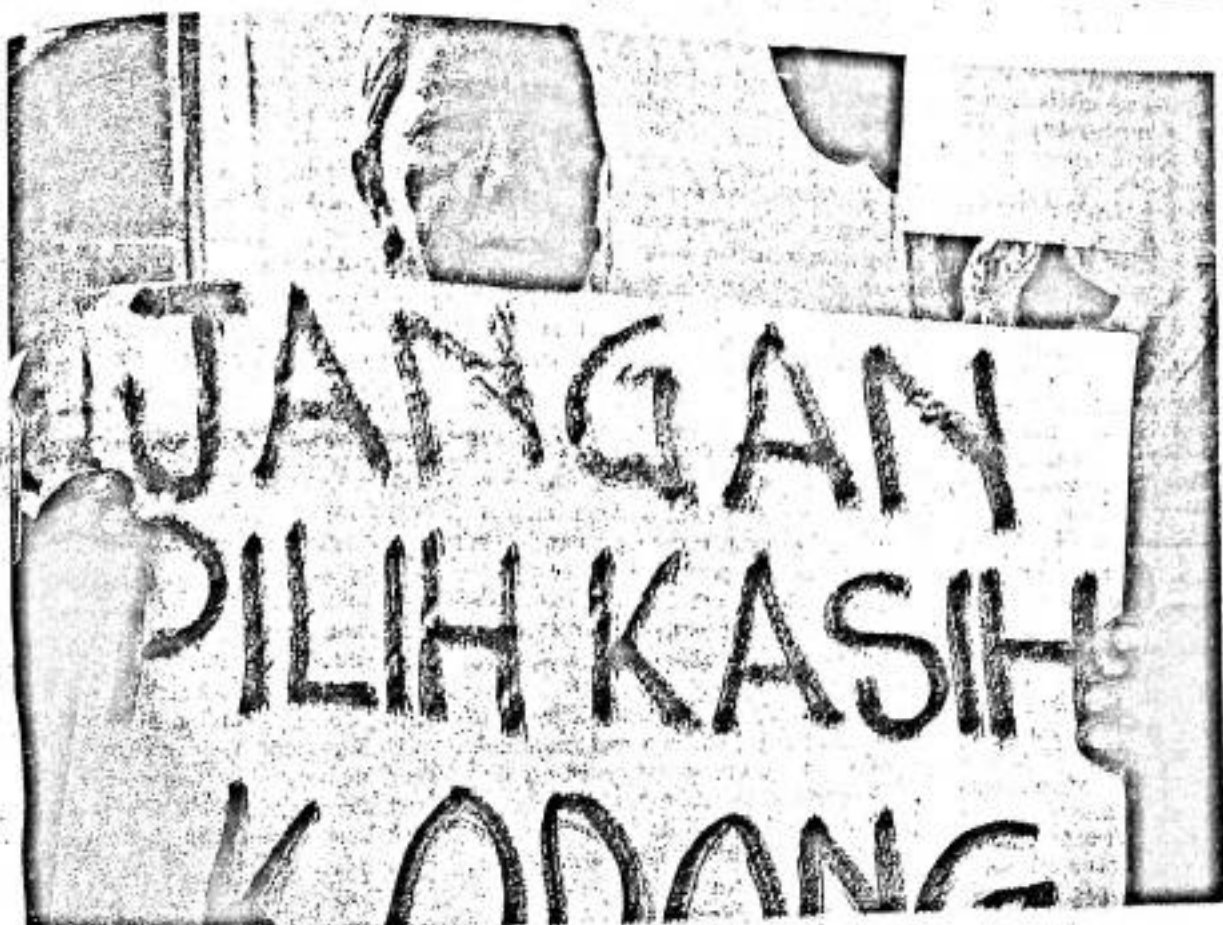 JANGAN
PILIH KASIH
KODONG